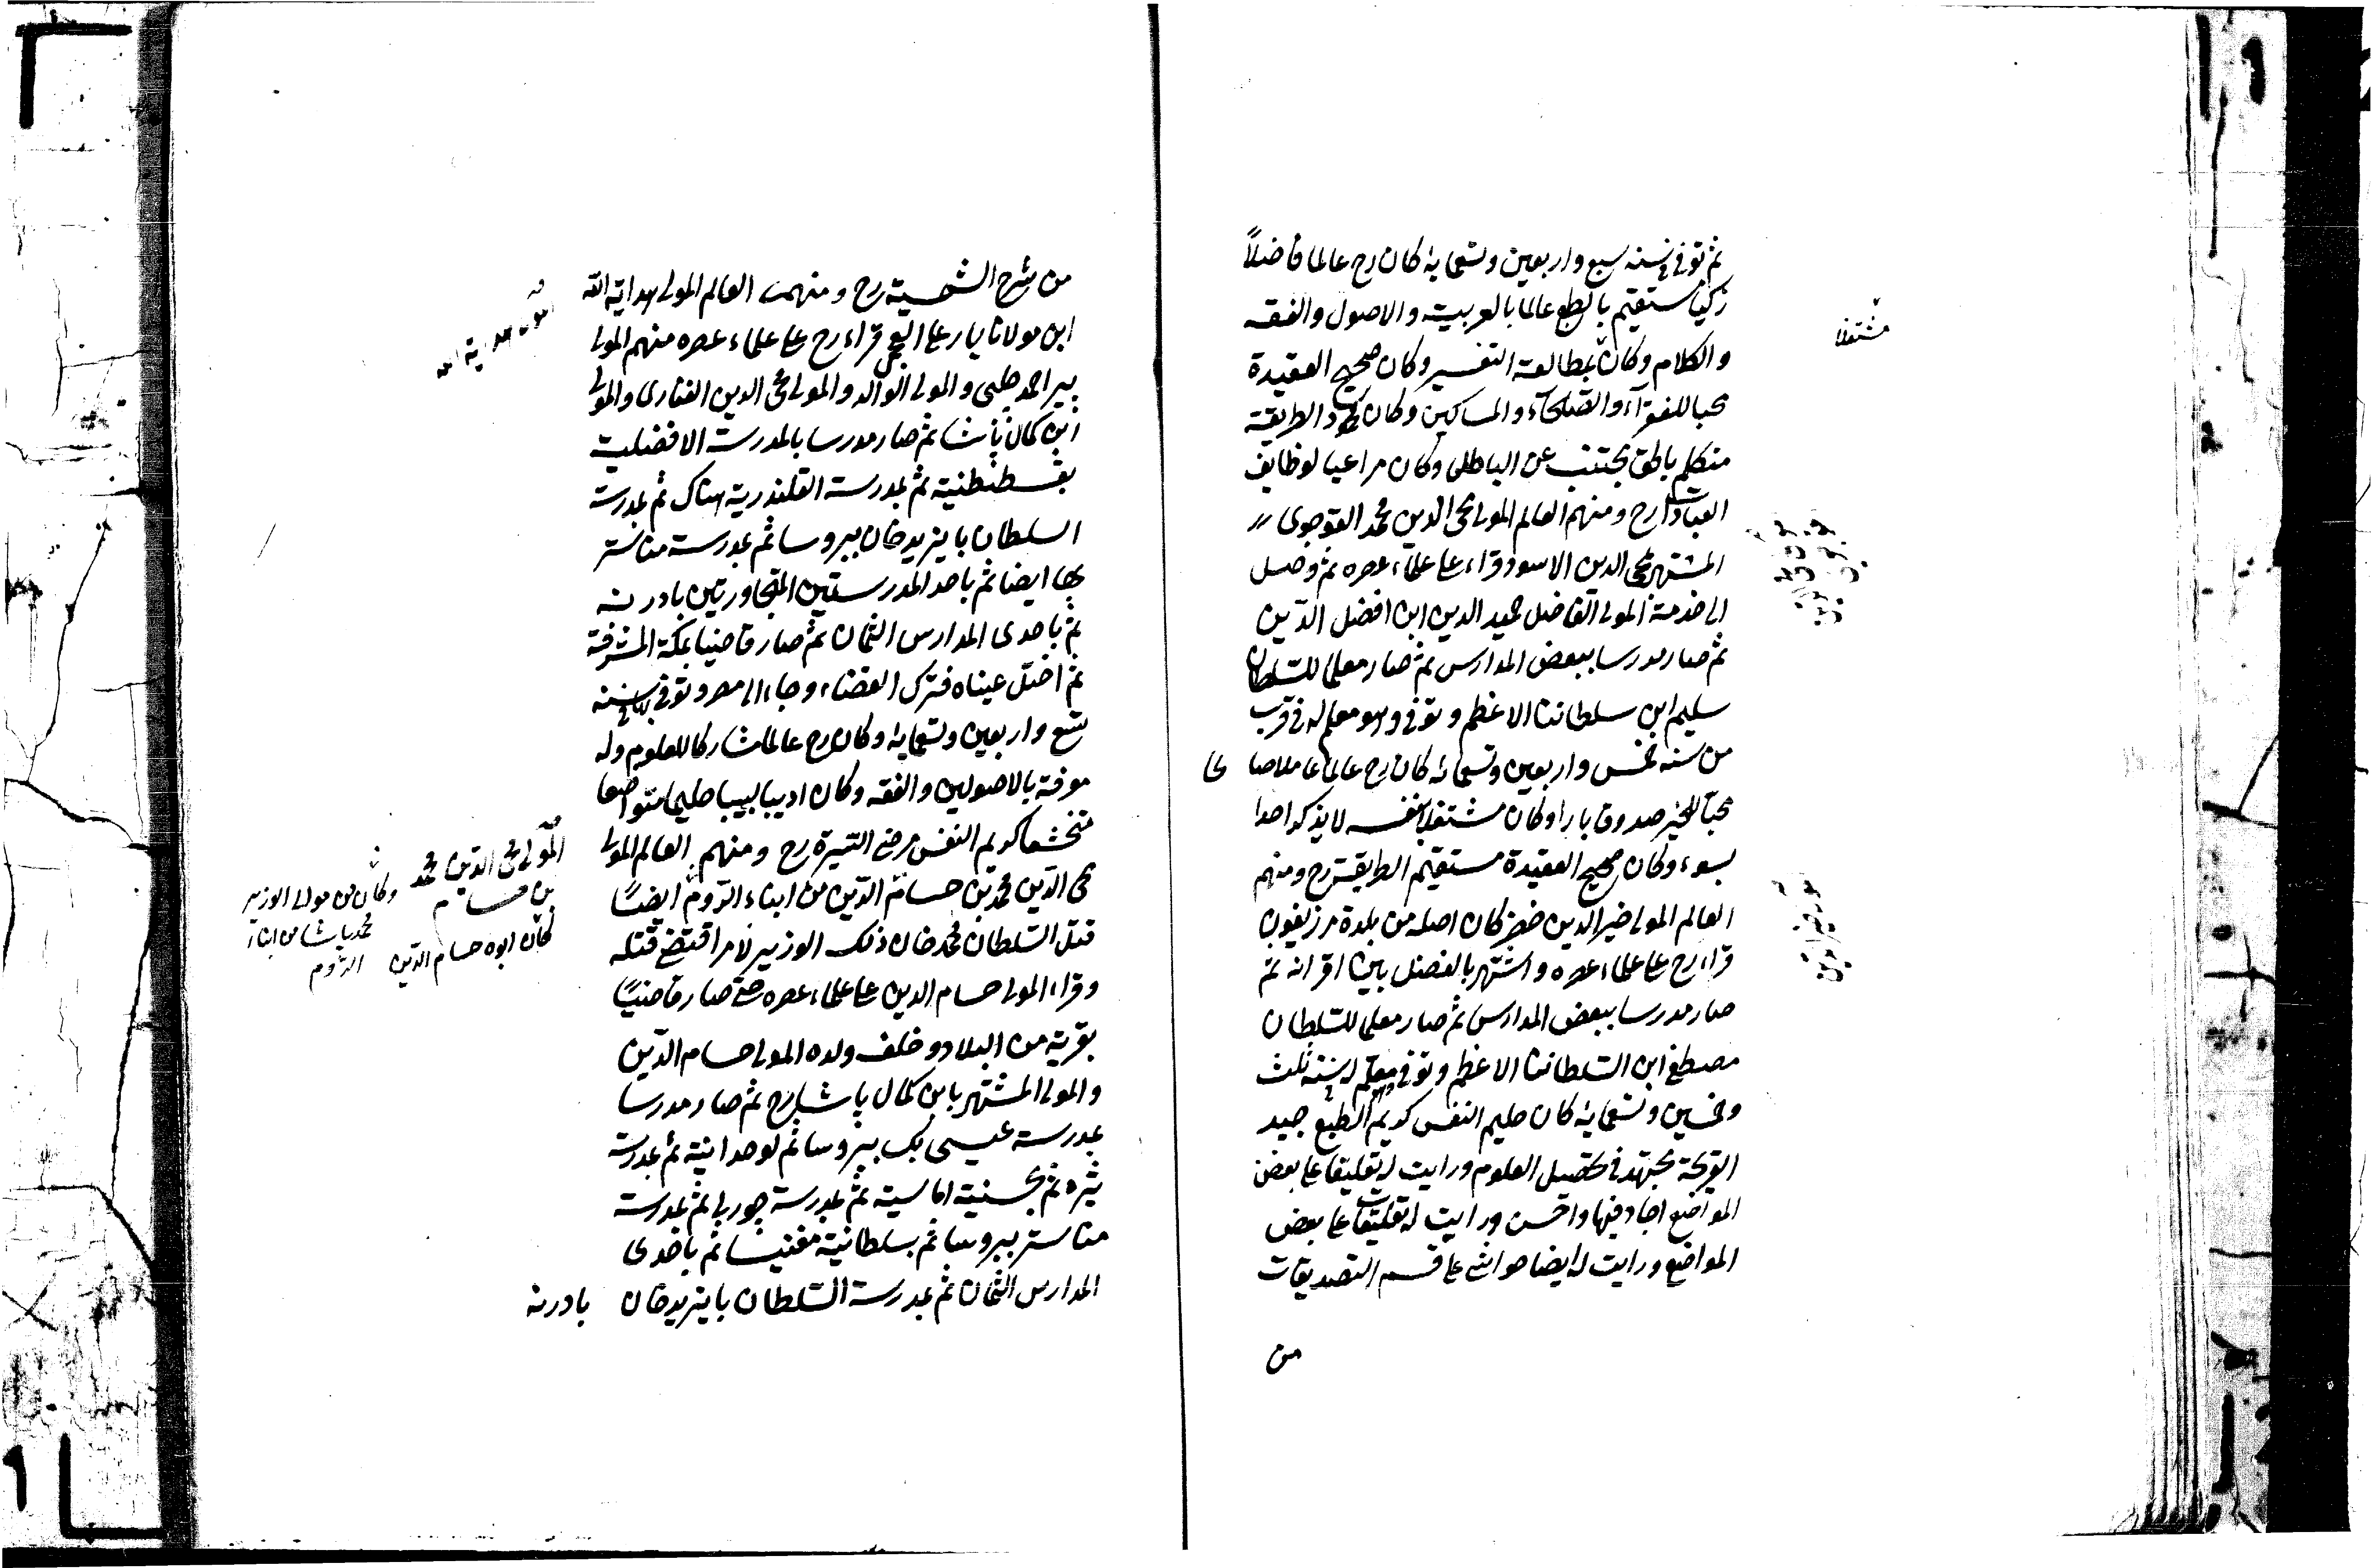 ثم توفى فى سنه سبع واربعين وتسعمايه كان رح عالما فاضلاً
زكيا مستقيم بالطبع عالما بالعربية والاصول والفقه
والكلام وكان بمطالعة التفسير وكان صحيح العقيدة
مشتغلا
محبا للفقرآء والصلحآء والمساكين وكان محمود الطريقة
متكلم بالحق مجتنب عن الباطل وكان مراعيا لوظايف
العبادات رح ومنهم العالم المولى محى الدين محمد القوجوى
المشتهر بمحى الدين الاسود قراء على علماء عصره ثم وصل
الى خدمة المولى الفاضل حميد الدين ابن افضل الدين
ثم صار مدرسا ببعض المدارس ثم صار معلما للسلطان
سليم ابن سلطاننا الاعظم وتوفى وهو معلم له فى قرب
من سنه خمس واربعين وتسعمائه كان رح عالما عاملا صالحا
محبآ للخير صدوقا بارا وكان مشتغلا بنفسه لا يذكر احدا
بسوء وكان صحيح العقيدة مستقيم الطريقة رح ومنهم
العالم المولى خير الدين خضر كان اصله من بلدة مرزيفون
قراء رح على علماء عصره واشتهر بالفضل بين اقرانه ثم
صار مدرسا ببعض المدارس ثم صار معلما للسلطان
مصطفى ابن السلطاننا الاعظم وتوفى وهو معلم له فى سنه ثلث
وخمسين وتسعمايه كان حليم النفس كريم الطبع جيد
القريحة مجتهد فى تحصيل العلوم ورايت له تعليقا على بعض
المواضع اجاد فيها واحسن ورايت له تعليقات على بعض
المواضع ورايت له ايضا حواشى على قسم التصديقات
من
من شرح الشمسية رح ومنهم العالم المولى هداية الله
ابن مولانا يار على العجمى قراء رح على علماء عصره منهم المولى
بير احمد جلبى والمولى الوالد والمولى محى الدين الفنارى والمولى
ابن كمال پاشا ثم صار مدرسا بالمدرسة الافضلية
بقسطنطنية ثم بمدرسة القلندرية هناك ثم بمدرسة
السلطان بايزيد خان ببروسا ثم بمدرسة مناستر
بها ايضا ثم باحد المدرستين المتجاورتين بادرنه
ثم باحدى المدارس الثمان ثم صار قاضيا بمكة المشرفة
ثم اختل عيناه فترك القضاء وجاء الى مصر وتوفى بها فى سنه
تسع واربعين وتسعمايه وكان رح عالما مشاركا للعلوم وله
معرفة بالاصولين والفقه وكان اديبا لبيبا حليما متواضعا
متخشعا كريم النفس مرضى السيرة رح ومنهم العالم المولى
محى الدين محمد بن حسام الدين من ابناء الروم ايضًا
قتل السلطان محمد خان ذلك الوزير لامر اقتضى قتله
وقراء المولى حسام الدين على علماء عصره حتى صار قاضيًا
بقرية من البلاد وخلف ولده المولى حسام الدين
والمولى المشتهر بابن كمال پاشا رح ثم صار مدرسا
بمدرسة عيسى بك ببروسا ثم لوحدانية ثم بمدرسة
تيره ثم بحسنية اماسية ثم بمدرسة جورلى ثم بمدرسة
مناستر ببروسا ثم بسلطانية مغنيسا ثم باحدى
المدارس الثمان ثم بمدرسة السلطان بايزيد خان بادرنه
المولى محى الدين محمد
بن حسام
كان ابوه حسام الدين
وكان من موالى الوزير
محمد پاشا من ابناء
الروم